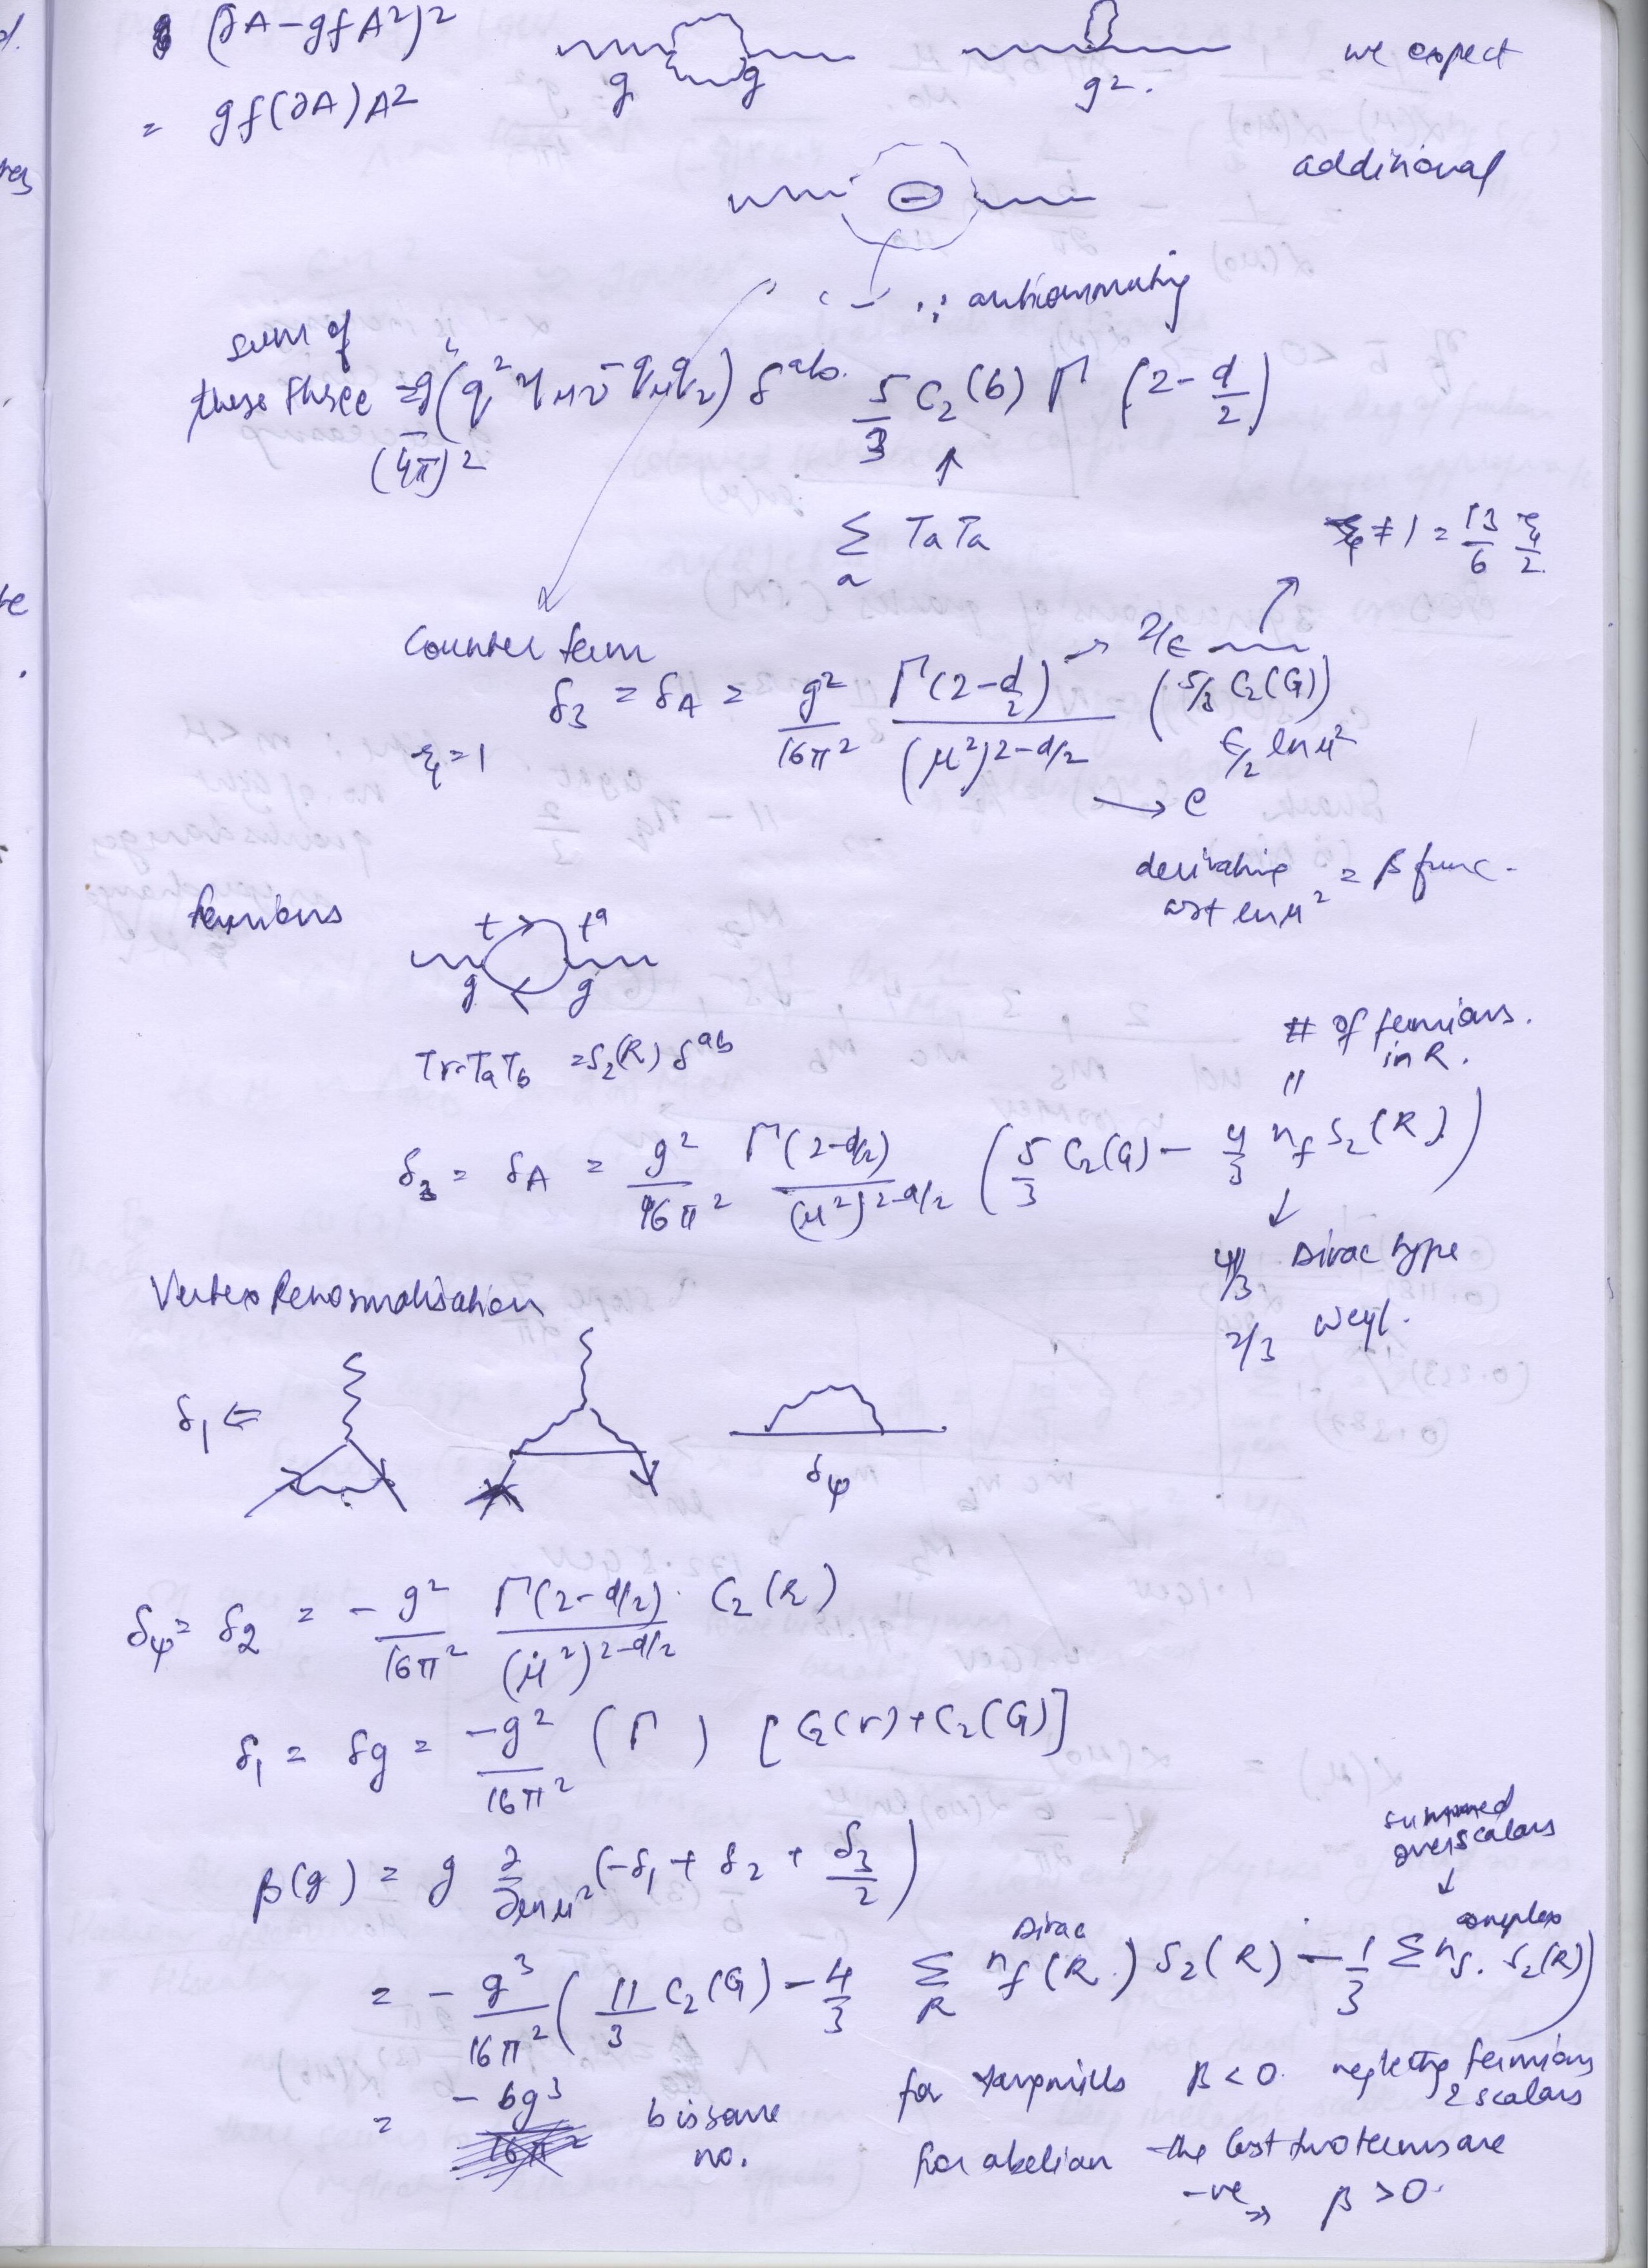 (∂A-gfA²)²
= gf(∂A)A²
g g
g².
we expect
additional
(-) ∵ anticommuting
sum of
these three = g²/(4π)² (q²η_μν - q_μ q_ν) δ^ab. 5/3 C₂(G) Γ (2-d/2)
↑
Σ_a TaTa
ξ ≠ 1 = 13/6 ξ/2
Counter term → 2/ε
δ₃ = δ_A = g²/16π² Γ(2-d/2)/(μ²)^2-d/2 (5/3 C₂(G))
ξ=1
→ e^ε/2 ln μ²
derivative wrt ln μ² = β func.
fermions
t t^a
g g
Tr TaTb = S₂(R) δ^ab
# of fermions in R.
δ₃ = δ_A = g²/16π² Γ(2-d/2)/(μ²)^2-d/2 (5/3 C₂(G) - 4/3 n_f S₂(R))
↓
4/3 Dirac type
2/3 Weyl.
Vertex Renormalisation
δ₁ ⇐
δ_ψ
δ_ψ = δ₂ = - g²/16π² Γ(2-d/2)/(μ²)^2-d/2 . C₂(R)
δ₁ = δg = -g²/16π² (Γ ) [C₂(r)+C₂(G)]
β(g) = g ∂/∂ln μ² (-δ₁ + δ₂ + δ₃/2)
summed over scalars
↓
Dirac complex
= - g³/16π² (11/3 C₂(G) - 4/3 Σ_R n_f(R) S₂(R) - 1/3 Σ n_s. S₂(R))
= -bg³ b is some no.
for Yang mills β<0. neglecting fermions & scalars
for abelian the last two terms are -ve ⇒ β >0.